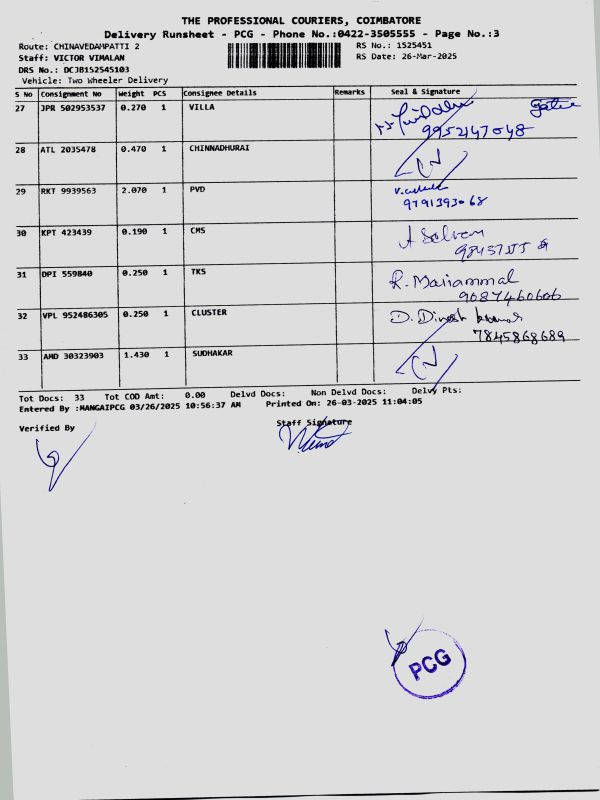 THE PROFESSIONAL COURIERS, COIMBATORE
Delivery Runsheet - PCG - Phone No.:0422-3505555 - Page No.:3
Route: CHINAVEDAMPATTI 2 RS No.: 1525451
Staff: VICTOR VIMALAN RS Date: 26-Mar-2025
DRS No.: DCJB152545103
Vehicle: Two Wheeler Delivery
S No Consignment No Weight PCS Consignee Details Remarks Seal & Signature
27 JPR 502953537 0.270 1 VILLA
9952147048
28 ATL 2035478 0.470 1 CHINNADHURAI
29 RKT 9939563 2.070 1 PVD
9791393068
30 KPT 423439 0.190 1 CMS A Selvam
31 DPI 559840 0.250 1 TKS R. Mariammal
9687460606
32 VPL 952486305 0.250 1 CLUSTER D. Dinesh kumar
7845868689
33 AMD 30323903 1.430 1 SUDHAKAR
Tot Docs: 33 Tot COD Amt: 0.00 Delvd Docs: Non Delvd Docs: Delvy Pts:
Entered By :MANGAIPCG 03/26/2025 10:56:37 AM Printed On: 26-03-2025 11:04:05
Verified By Staff Signature
PCG